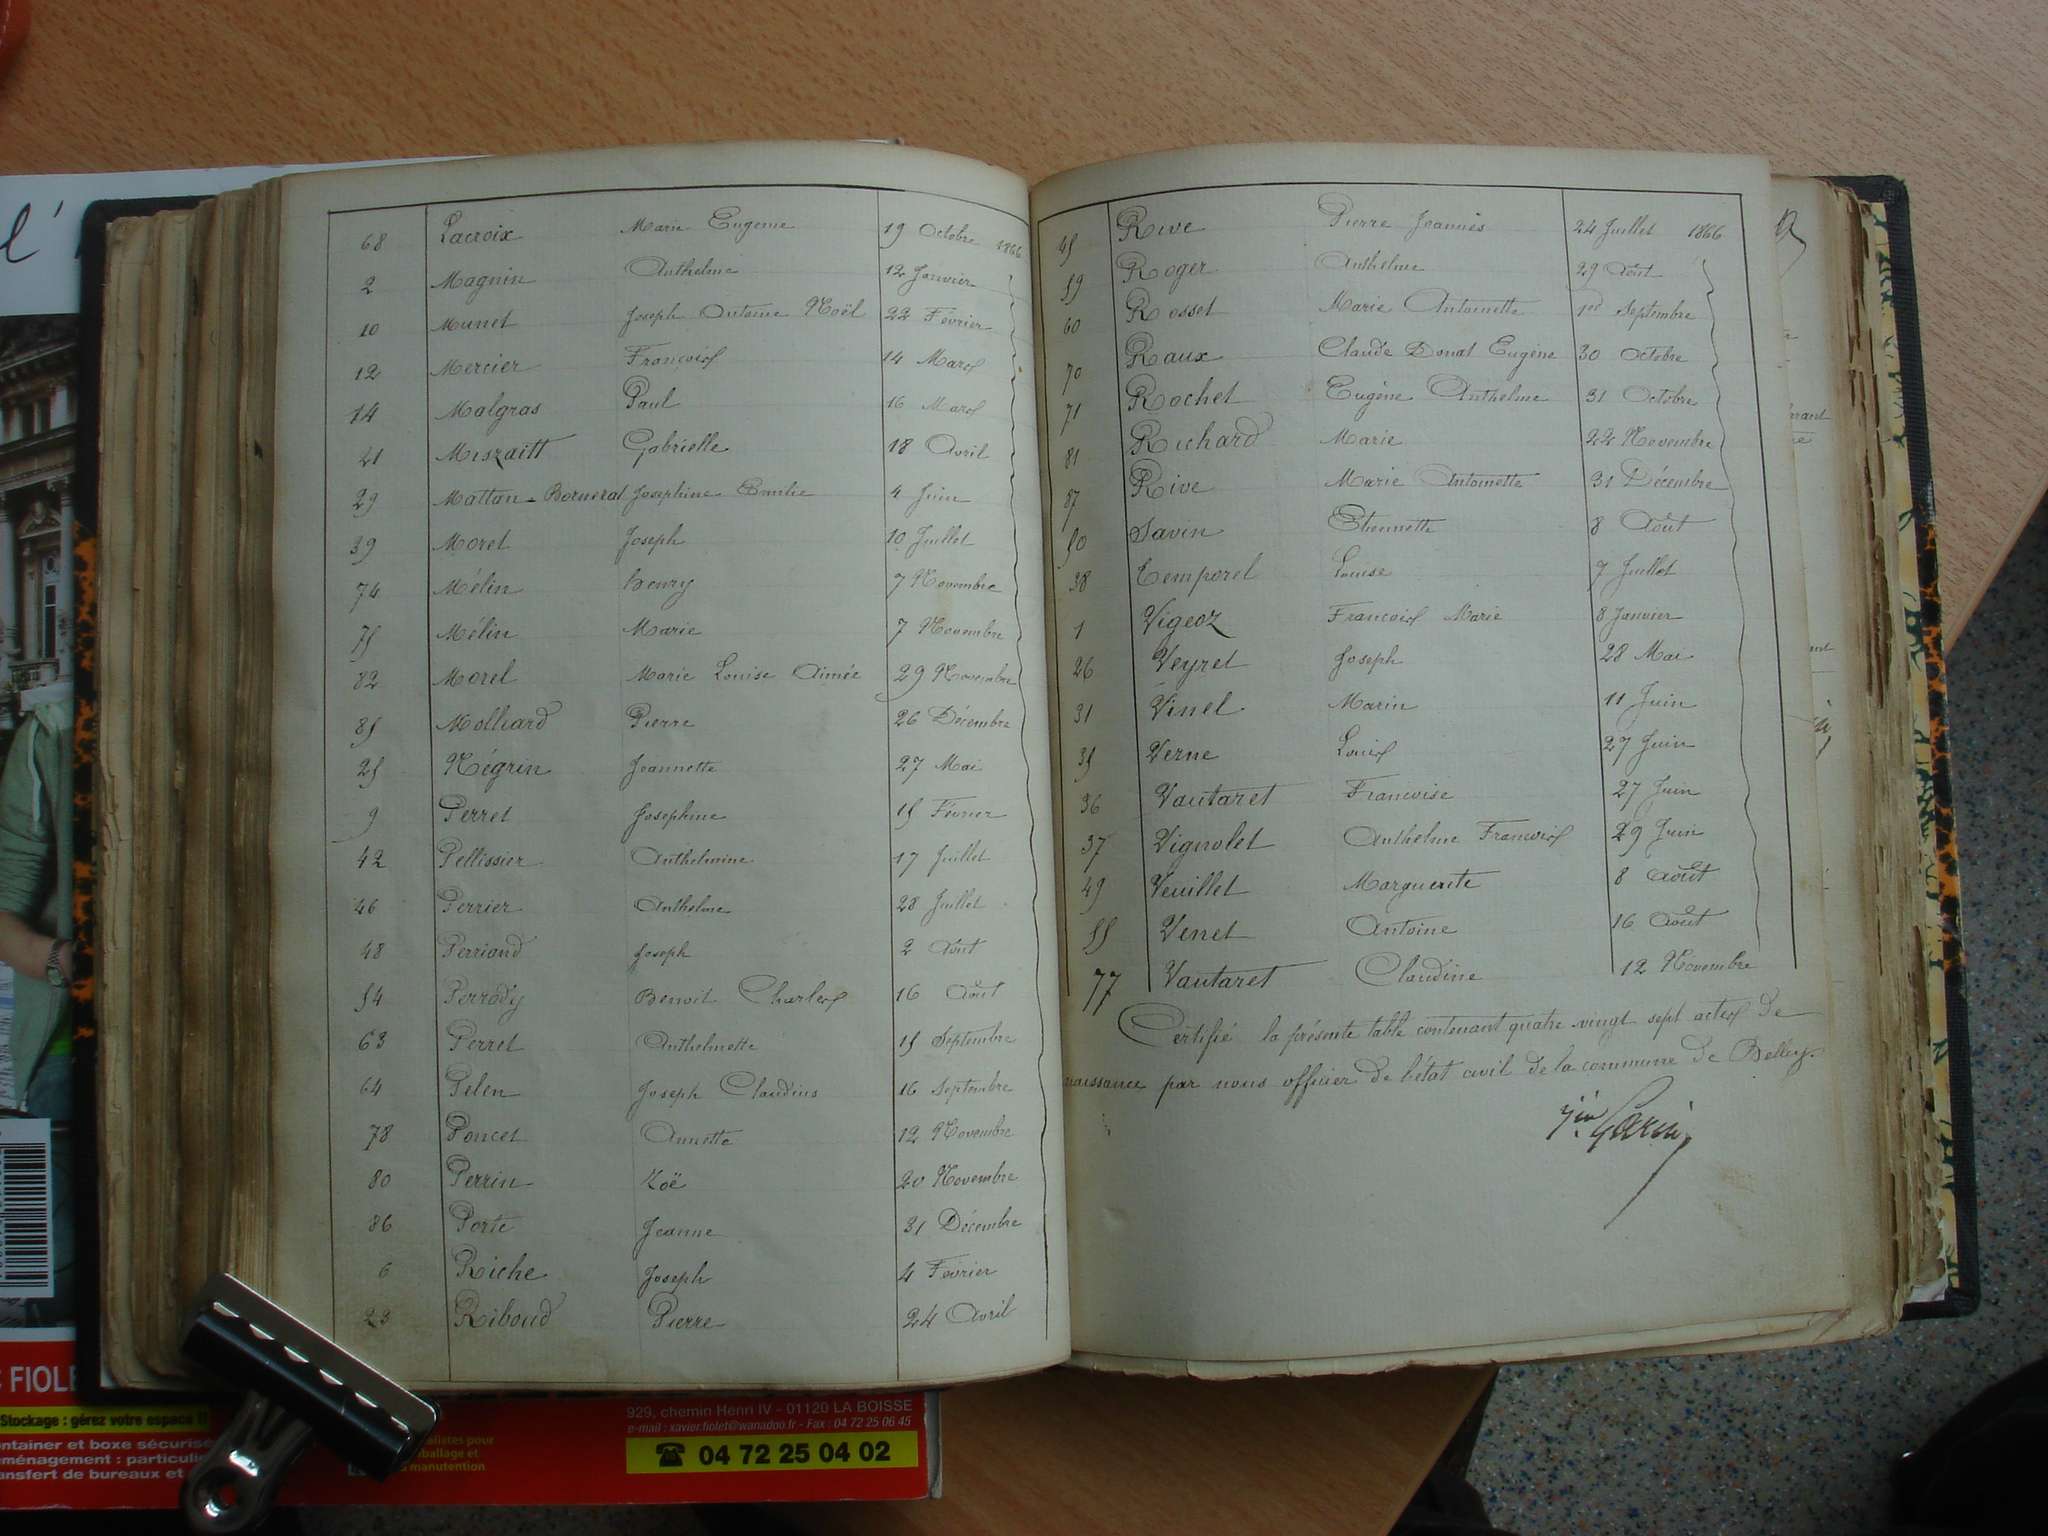 68 Lacroix Marie Eugénie 19 Octobre 1866
2 Magnin Anthelme 12 Janvier
10 Munet Joseph Antoine Noël 22 Février
12 Mercier François 14 Mars
14 Malgras Paul 16 Mars
21 Gabrielle 18 Avril
29 Mattan - Borneral Joséphine Emilie 4 Juin
39 Moret Joseph 10 Juillet
74 Mélin henry 7 Novembre
75 Mélin Marie 7 Novembre
82 Morel Marie Louise Aimée 29 Novembre
85 Molliard Pierre 26 Décembre
25 Négrin Jeannette 27 Mai
9 Perret Joséphine 15 Février
42 Pellissier Anthelmine 17 Juillet
46 Perrier Anthelme 28 Juillet
48 Perriand Joseph 2 Août
54 Perrody Benoit Charles 16 Août
63 Perret Anthelmette 15 Septembre
64 Pelen Joseph Claudius 16 Septembre
78 Poncet Annette 12 Novembre
80 Perrin Zoë 20 Novembre
86 Porte Jeanne 31 Décembre
6 Riche Joseph 4 Février
23 Riboud Pierre 24 Avril
45 Rive Pierre Joannès 24 Juillet 1866
59 Roger Anthelme 29 Août
60 Rosset Marie Antoinette 1er Septembre
70 Raux Claude Donat Eugène 30 Octobre
71 Rochet Eugène Anthelme 31 Octobre
81 Richard Marie 22 Novembre
87 Rive Marie Antoinette 31 Décembre
50 Savin Etiennette 8 Août
38 Temporel Louise 7 Juillet
1 Vigeoz François Marie 8 Janvier
26 Veyret Joseph 28 Mai
31 Vinel Marin 11 Juin
35 Verne Louis 27 Juin
36 Vautaret Françoise 27 Juin
37 Vignolet Anthelme François 29 Juin
49 Veuillet Marguerite 8 août
55 Venet Antoine 16 Août
77 Vautaret Claudine 12 Novembre
Certifié la présente table contenant quatre vingt sept actes de
naissance par nous officier de l'état civil de la commune de Belley.
Garin
FIOLE
Stockage : gérez votre espace !!
ntainer et boxe sécurisé
ménagement : particulie
ansfert de bureaux et
alistes pour
ballage et
manutention
929, chemin Henri IV - 01120 LA BOISSE
e-mail : xavier.fiolet@wanadoo.fr - Fax : 04 72 25 06 45
☎ 04 72 25 04 02